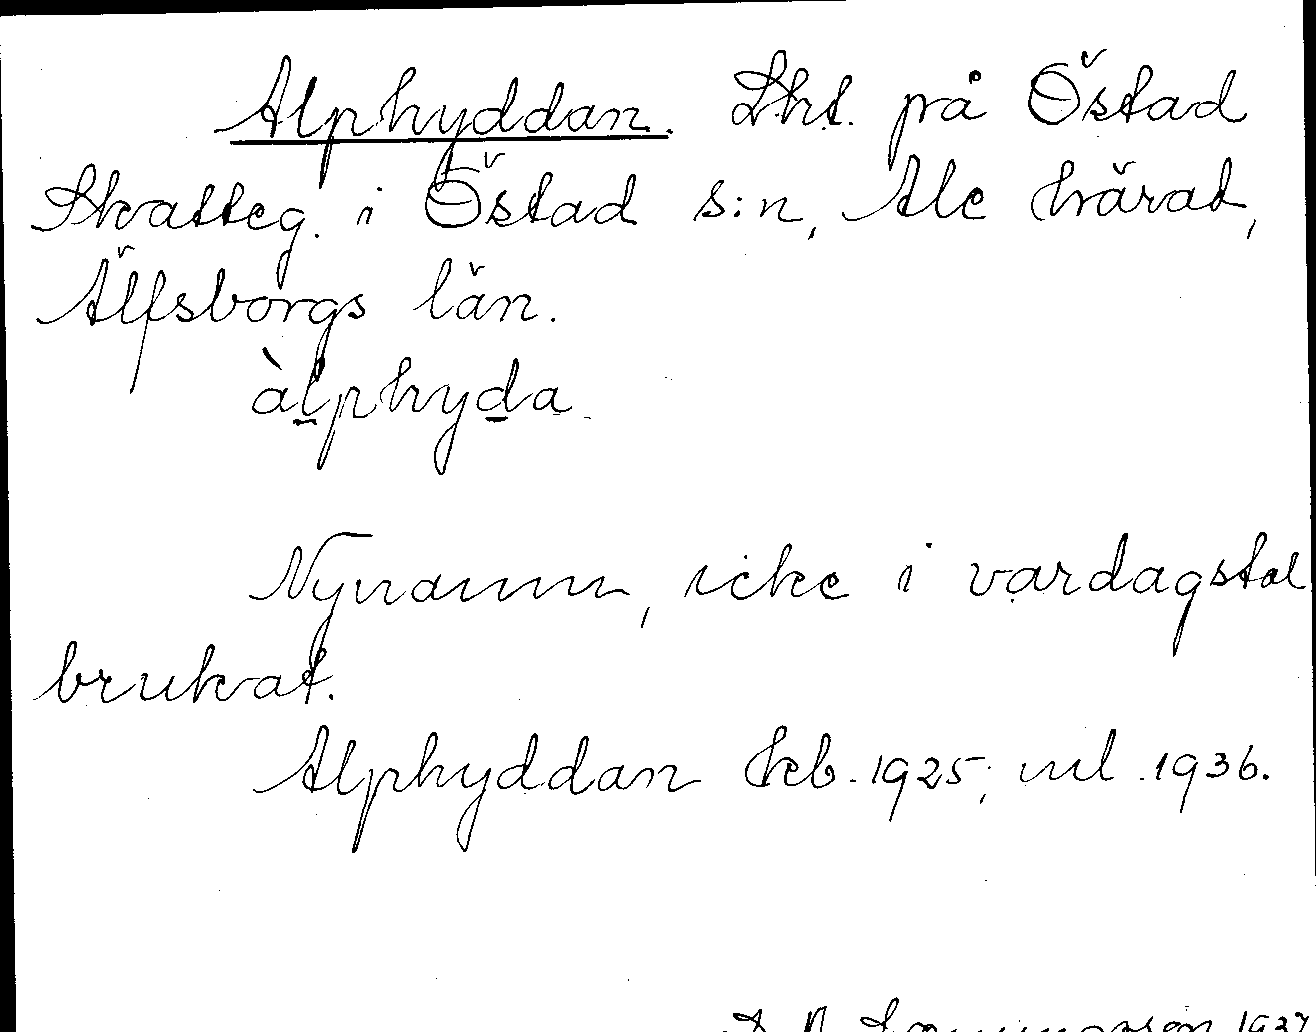 Alphyddan. Lht. på Östad
Skatteg. i Östad s:n, Ale härad,
Älfsborgs län.
àlphyda.
Nynamn, icke i vardagstal
brukat.
Alphyddan kb. 1925; ml. 1936.
1937